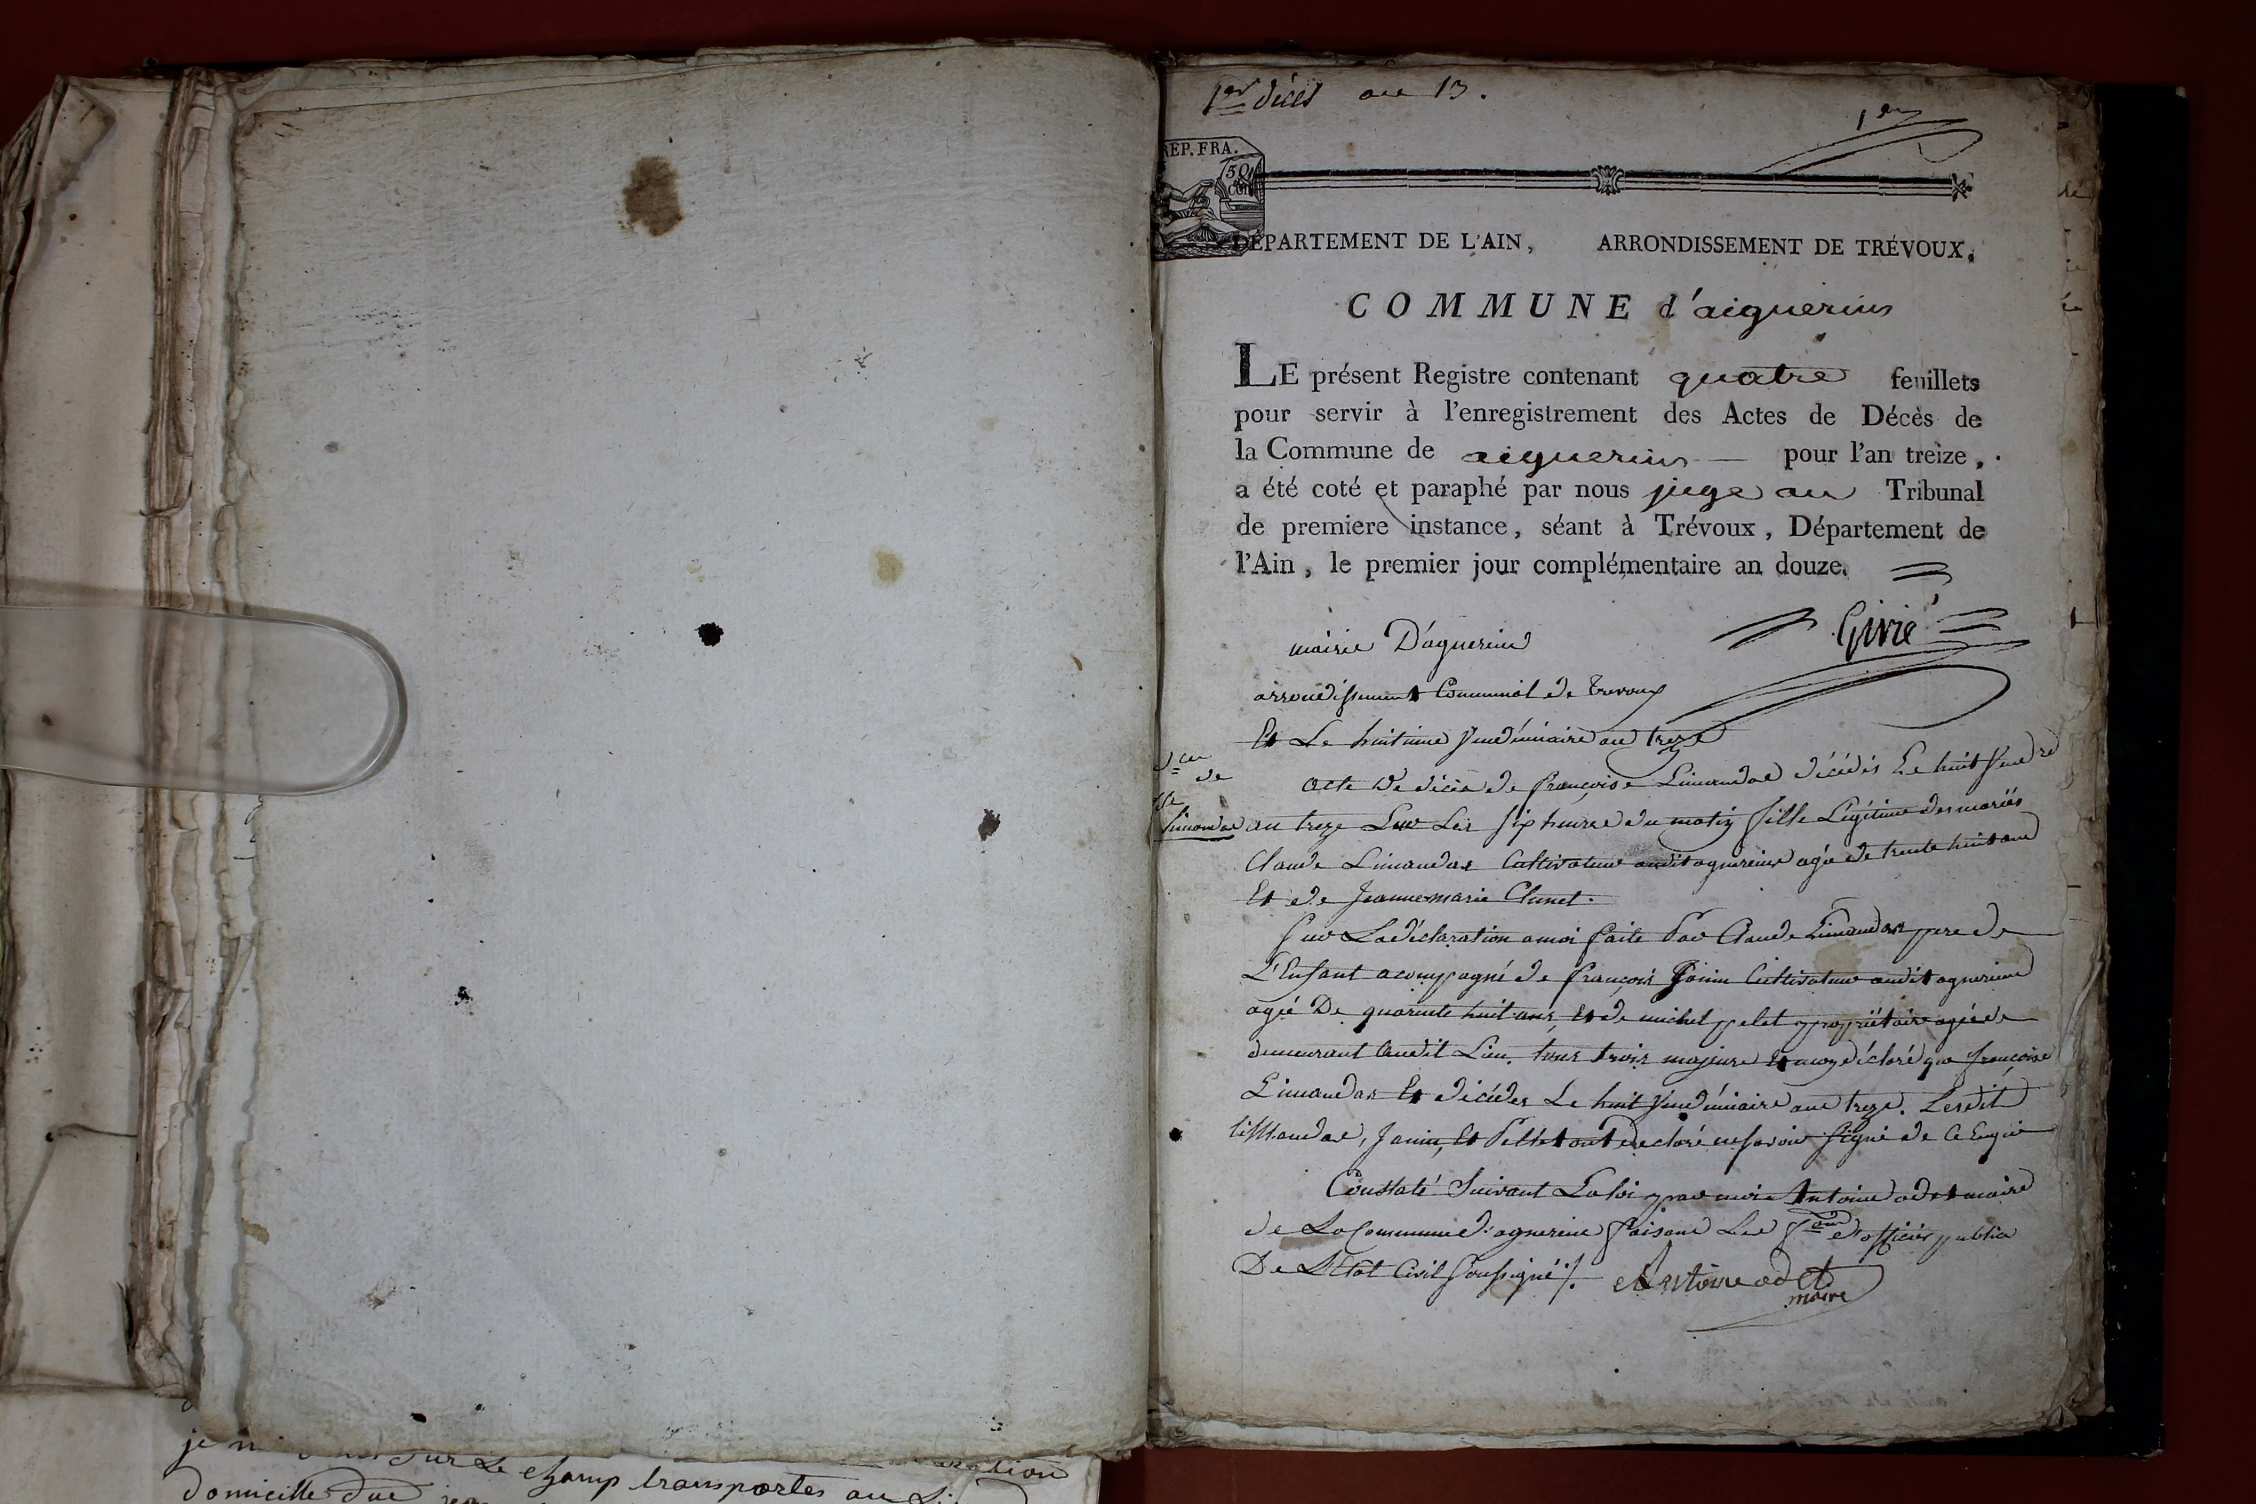 1er décès an 13.
1er
REP. FRA.
50
DÉPARTEMENT DE L'AIN, ARRONDISSEMENT DE TRÉVOUX.
COMMUNE d'aiguerins
LE présent Registre contenant quatre feuillets
pour servir à l'enregistrement des Actes de Décès de
la Commune de aiguerins — pour l'an treize,
a été coté et paraphé par nous juge au Tribunal
de premiere instance, séant à Trévoux, Département de
l'Ain, le premier jour complémentaire an douze.
Givré
mairie D'aguerins
arrondissement Communal de Trevoux
Et Le huitieme Vendémiaire an treze
de
Limandas
Acte De décés de françoise Limandas décédés Le huit Vendre
an treze Sur Les six heures du matin fille Légitime des mariés
Claude Limandas Cultivateur audit aguereins agé de trente huit ans
Et de Jeanne marie Clunet.
Sur La déclaration a moi faite Par Claude Limandas pere de
L'Enfant acompagné de françois Janin Cultivateur audit aguereins
agé De quarente huit ans, Et de michel pelet propriétaire agé de
demeurant Audit Lieu. tous trois majeurs déclaré que françoise
Limandas Et décédés Le huit Vendémiaire an treze. Lesdit
limandas, Janin, Et Pellet ont declaré ne savoir signé de ce Enquis
Constaté Suivant La loi par moi Antoine odet maire
de La Commune d'aguereins faisant Les officier public
De L'Etat Civil Soussigné ./.
Antoine odet
maire
je sur Le champ transportes au
domicille due